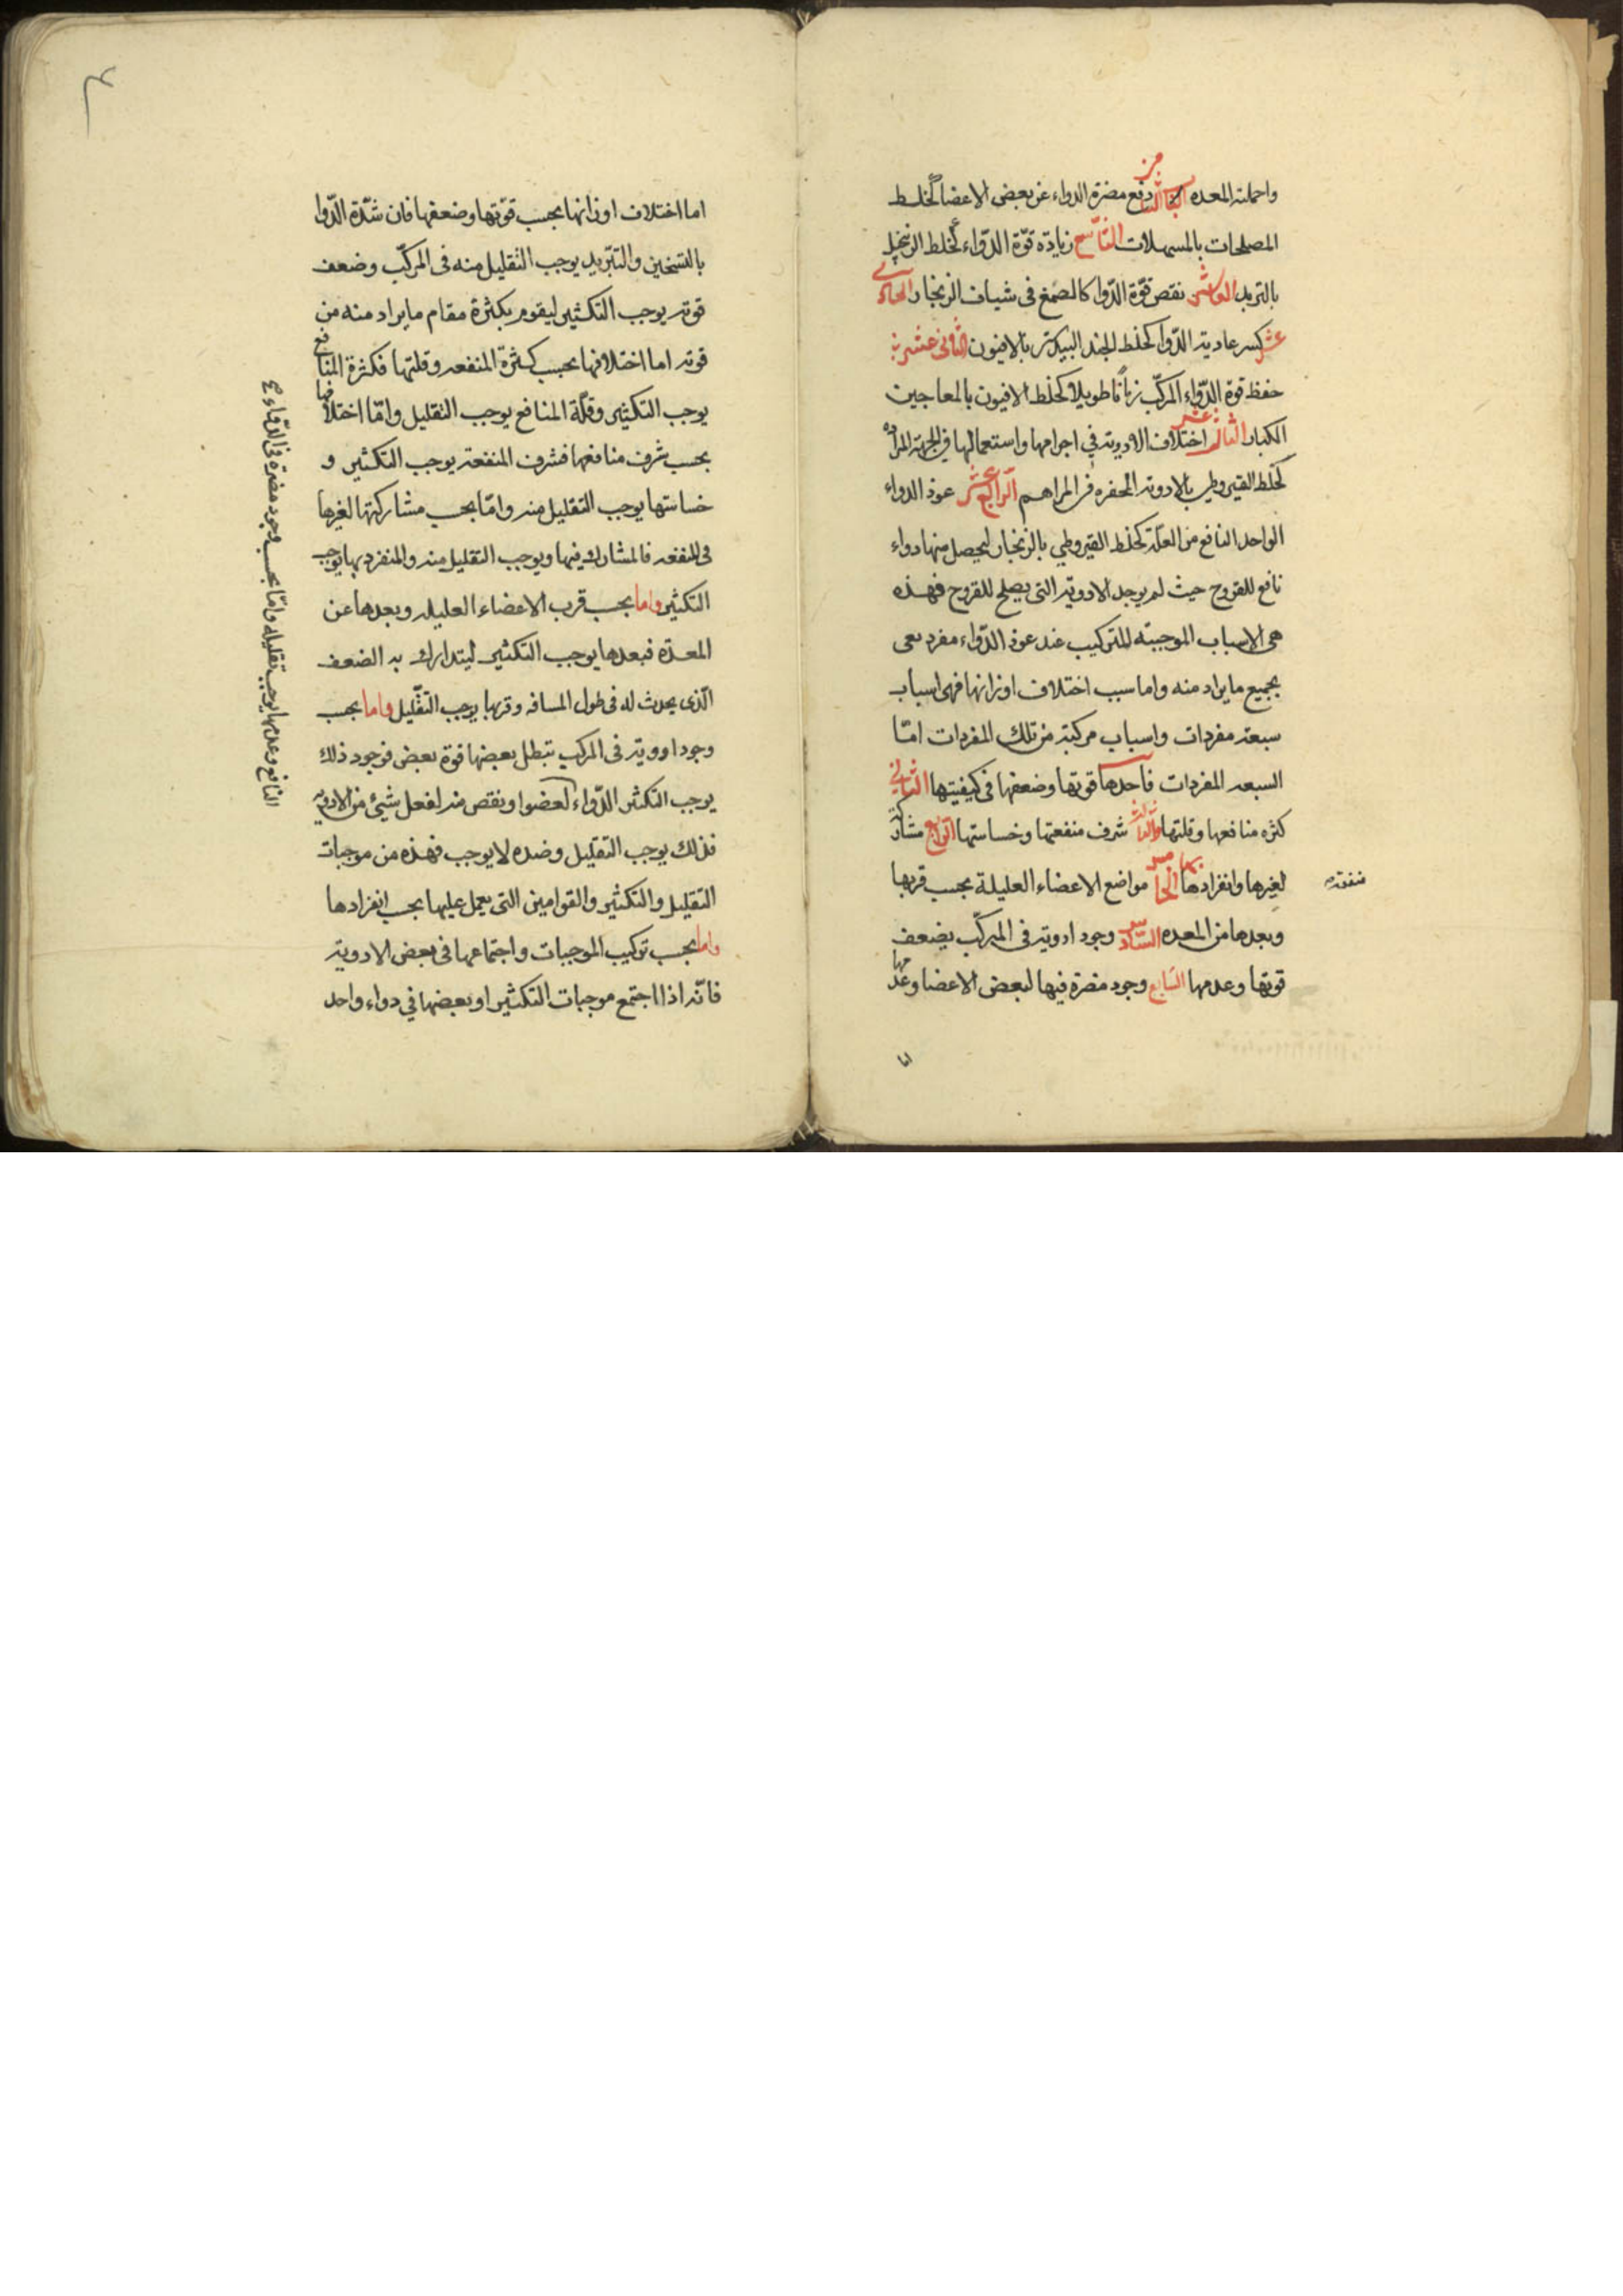 واحملته المعده الثامن دفع مضرة الدواء عن بعض الاعضا كخلط
المصلحات بالمسهلات التاسع زيادة قوة الدواء كخلط الزنجبيل
بالتربد العاشر نقص قوة الدوا كالصمغ فى شياف الزنجار الحادى
عشر كسر عادية الدوا كخلط الجند البيدستر بالافيون الثانى عشر
حفظ قوة الدواء المركب زمانا طويلا كخلط الافيون بالمعاجين
الكبار الثالث عشر اختلاف الادوية في اجرامها واستعمالها في الجهة المراده
كخلط القيروطي بالادوية المحفره في المراهم الرابع عشر عوذ الدواء
الواحد النافع من العلة كخلط القيروطي بالزنجار ليحصل منها دواء
نافع للقروح حيث لم يوجد الادوية التى يصلح للقروح فهذه
هى الاسباب الموجبته للتركيب عند عوذ الدواء مفرد يعى
بجميع ما يراد منه واما سبب اختلاف اوزانها فهى اسباب
سبعة مفردات واسباب مركبة من تلك المفردات اما
السبعه المفردات فاحدها قوتها وضعفها فى كيفيتها الثانى
كثره منافعها وقلتها والثالث شرف منفعتها وخساستها الرابع مشاركة
لغيرها وانفرادها بها الخامس مواضع الاعضاء العليلة بحسب قربها
منفعته
وبعدها من المعده السادس وجود ادوية فى المركب يضعف
قوتها وعدمها السابع وجود مضرة فيها لبعض الاعضا وعدمها
اما
اما اختلاف اوزانها بحسب قوتها وضعفها فان شدة الدوا
بالتسخين والتبريد يوجب التقليل منه فى المركب وضعف
قوته يوجب التكثير ليقوم بكثرة مقام ما يراد منه من
قوته اما اختلافها بحسب كثرة المنفعه وقلتها فكثرة المنافع
يوجب التكثير وقلة المنافع يوجب التقليل واما اختلافها
بحسب شرف منافعها فشرف المنفعة يوجب التكثير و
خساستها يوجب التقليل منه واما بحسب مشاركتها لغيرها
فى المنفعه فالمشارك فيها ويوجب التقليل منه والمنفرد بها يوجب
التكثير واما بحسب قرب الاعضاء العليله وبعدها عن
المعدة فبعدها يوجب التكثير ليتدارك به الضعف
الذى يحدث له فى طول المسافه وقربها يوجب التقليل واما بحسب
وجود ادوية فى المركب تبطل بعضها قوة بعض فوجود ذلك
يوجب التكثير الدواء لعضوا ونقص منه لفعل شيئ من الادويه
فذلك يوجب التقليل وضده لا يوجب فهذه من موجبات
التقليل والتكثير والقوامين التى يعمل عليها بحسب انفرادها
واما بحسب تركيب الموجبات واجتماعها فى بعض الادوية
فانه اذا اجتمع موجبات التكثير او بعضها في دواء واحد
النافع وعدمها يوجب تقليله واما بحسب وجود مضرة فى الدواء